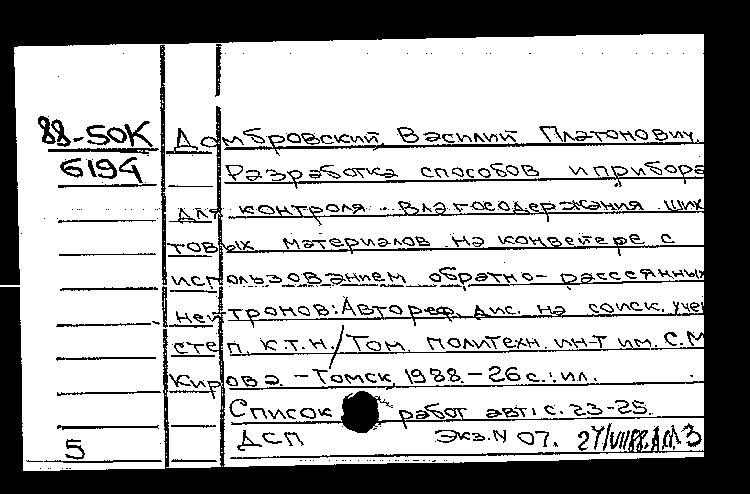 88-50К Домбровский Василий Платонович.
6194 Разработка способов и прибора
для контроля влагосодержания ших
товых материалов на конвейере с
использованием обратно-рассеянных
нейтронов: Автореф. дис. на соиск. учен
степ. к.т.н. / Том. политехн. ин-т им. С.М
Кирова. - Томск, 1988. - 26 с.: ил.
Список работ авт.: с. 23-25.
5 ДСП Экз. N 07.